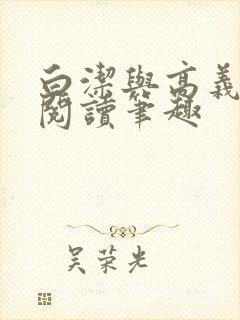 白潔與高義
閱讀筆趣
吴荣光